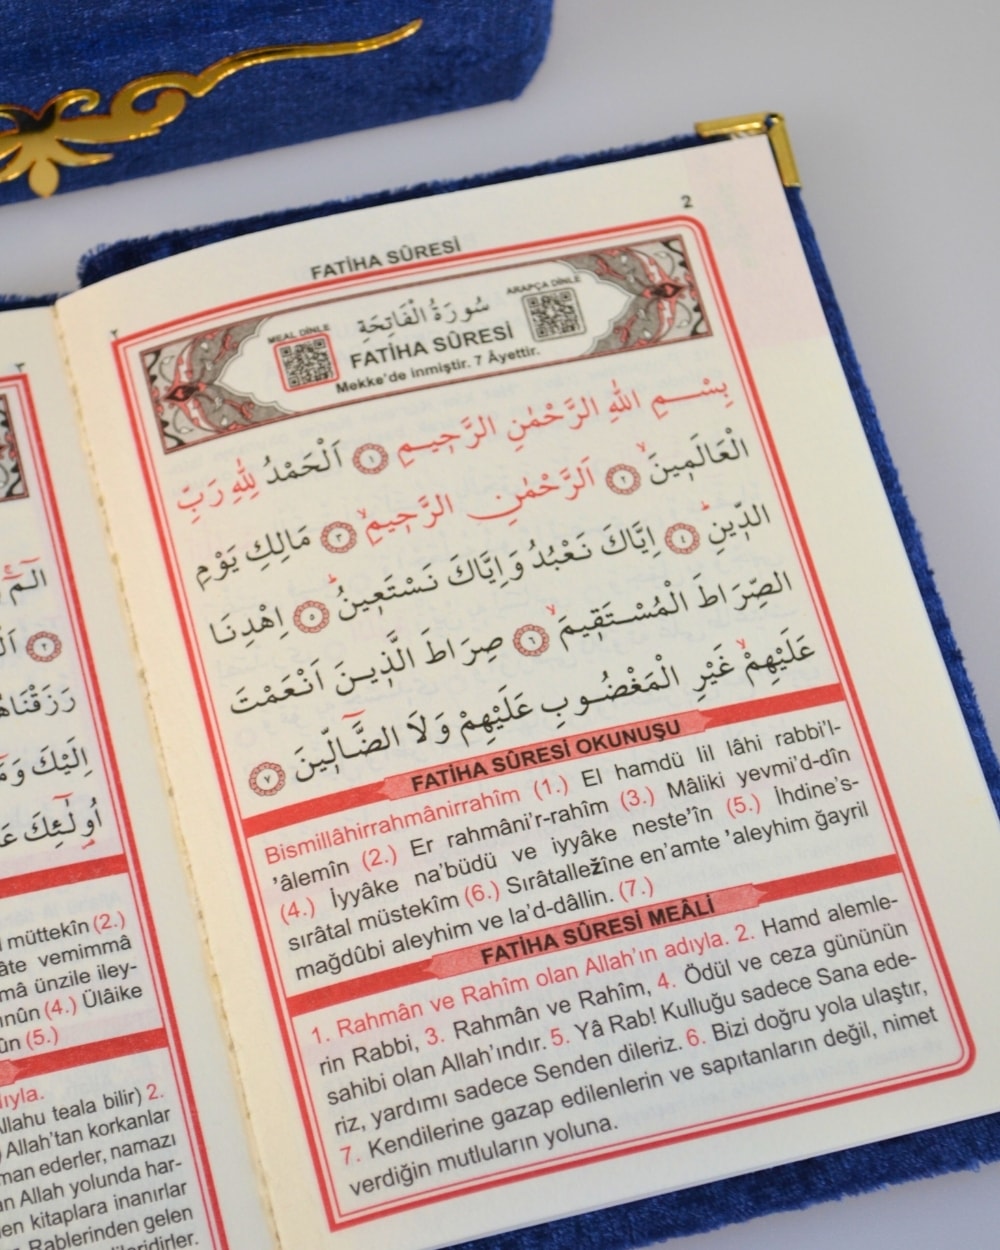 2
FATİHA SÛRESİ
٢
MEAL DİNLE
سُورَةُ الْفَاتِحَةِ
ARAPÇA DİNLE
FATİHA SÛRESİ
Mekke'de inmiştir. 7 Âyettir.
بِسْــــمِ اللّٰهِ الرَّحْمٰنِ الرَّحٖيــمِ
﴿١﴾ اَلْحَمْدُ لِلّٰهِ رَبِّ
الْعَالَمٖينَۙ ﴿٢﴾ اَلرَّحْمٰنِ الرَّحٖيمِۙ ﴿٣﴾ مَالِكِ يَوْمِ
الدّٖينِؕ ﴿٤﴾ اِيَّاكَ نَعْبُدُ وَاِيَّاكَ نَسْتَعٖينُؕ ﴿٥﴾ اِهْدِنَا
الصِّرَاطَ الْمُسْتَقٖيمَۙ ﴿٦﴾ صِرَاطَ الَّذٖينَ اَنْعَمْتَ
عَلَيْهِمْۙ غَيْرِ الْمَغْضُوبِ عَلَيْهِمْ وَلَا الضَّٓالّٖينَ ﴿٧﴾
FATİHA SÛRESİ OKUNUŞU
Bismillâhirrahmânirrahîm (1.) El hamdü lil lâhi rabbi'l-
'âlemîn (2.) Er rahmâni'r-rahîm (3.) Mâliki yevmi'd-dîn
(4.) İyyâke na'büdü ve iyyâke neste'în (5.) İhdine's-
sırâtal müstekîm (6.) Sırâtalležîne en'amte 'aleyhim ğayril
mağdûbi aleyhim ve la'd-dâllin. (7.)
FATİHA SÛRESİ MEÂLİ
1. Rahmân ve Rahîm olan Allah'ın adıyla. 2. Hamd alemle-
rin Rabbi, 3. Rahmân ve Rahîm, 4. Ödül ve ceza gününün
sahibi olan Allah'ındır. 5. Yâ Rab! Kulluğu sadece Sana ede-
riz, yardımı sadece Senden dileriz. 6. Bizi doğru yola ulaştır,
7. Kendilerine gazap edilenlerin ve sapıtanların değil, nimet
verdiğin mutluların yoluna.
٣
الٓمٓ
﴿٢﴾
رَزَقْنَاهُ
اِلَيْكَ
اُو۬لٰٓئِكَ
müttekîn (2.)
vemimmâ
ünzile iley-
(4.) Ülâike
(5.)
teala bilir) 2.
Allah'tan korkanlar
ederler, namazı
Allah yolunda har-
kitaplara inanırlar
Rablerinden gelen